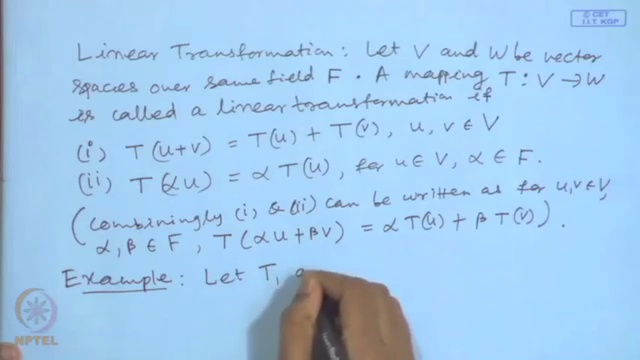 © CET
I.I.T. KGP
Linear Transformation: Let V and W be vector
spaces over same field F. A mapping T: V → W
is called a linear transformation if
(i) T(u+v) = T(u) + T(v), u, v ∈ V
(ii) T(αu) = α T(u), for u ∈ V, α ∈ F.
(combiningly (i) & (ii) can be written as for u, v ∈ V,
α, β ∈ F, T(αu + βv) = α T(u) + β T(v)).
Example: Let T₁ a
NPTEL